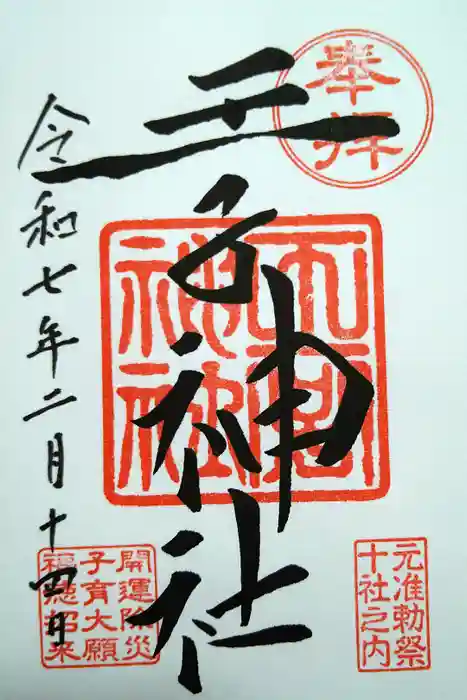 奉拝
王子神社
令和七年二月十四日
王子神社
元准勅祭
十社之内
開運除災
子育大願
福徳招来